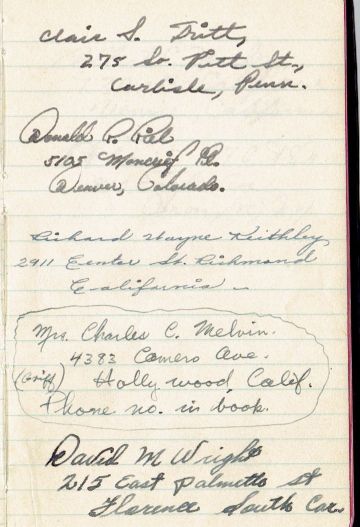 Clair S. Tritt,
275 So. Pitt St.,
Carlisle, Penn.
Donald P. Piel
5105 Moncrief Pl.
Denver, Colorado.
Richard Wayne Keithley
2911 Center St. Richmond
California
Mrs. Charles C. Melvin.
4383 Camero Ave.
(Griff) Hollywood, Calif.
Phone no. in book.
David M Wright
215 East Palmetto St
Florence South Car.